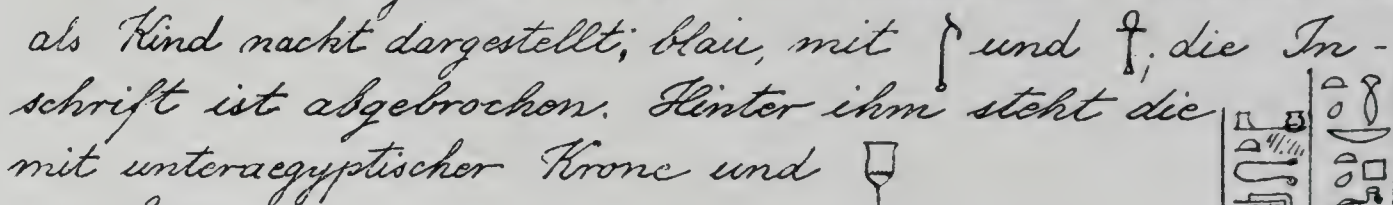 als Kind nackt dargestellt; blau, mit 𓌂 und 𓋹; die In-
schrift ist abgebrochen. Hinter ihm steht die
mit unteraegyptischer Krone und